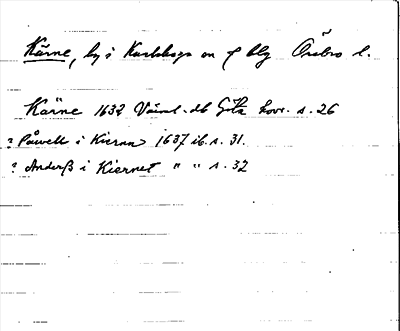 Kärne, by i Karlskoga sn o blg Örebro l.
Kärne 1632 Värml. db Göta hovr. s. 26
? Påwell i Kierna 1637 ib. s. 31.
? Anderß i Kiernet " " s. 32